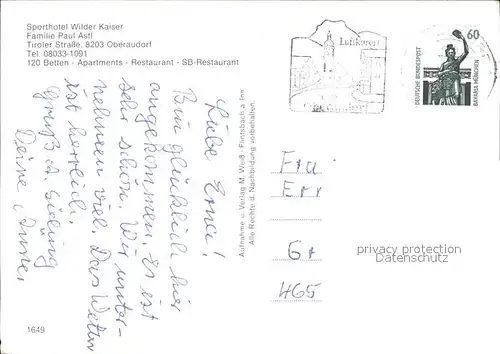 Sporthotel Wilder Kaiser
Familie Paul Astl
Tiroler Straße, 8203 Oberaudorf
Tel. 08033-1091
120 Betten - Apartments - Restaurant - SB-Restaurant
Luftkurort
60
DEUTSCHE BUNDESPOST
BAVARIA MÜNCHEN
Liebe Erna!
Bin glücklich hier
angekommen. Es ist
sehr schön. Wir unter-
nehmen viel. Das Wetter
ist herrlich.
Gruß
Deine
Aufnahme u. Verlag M. Weiß - Flintsbach a. Inn
Alle Rechte d. Nachbildung vorbehalten.
Frau
Err
Gr
465
privacy protection
Datenschutz
1649